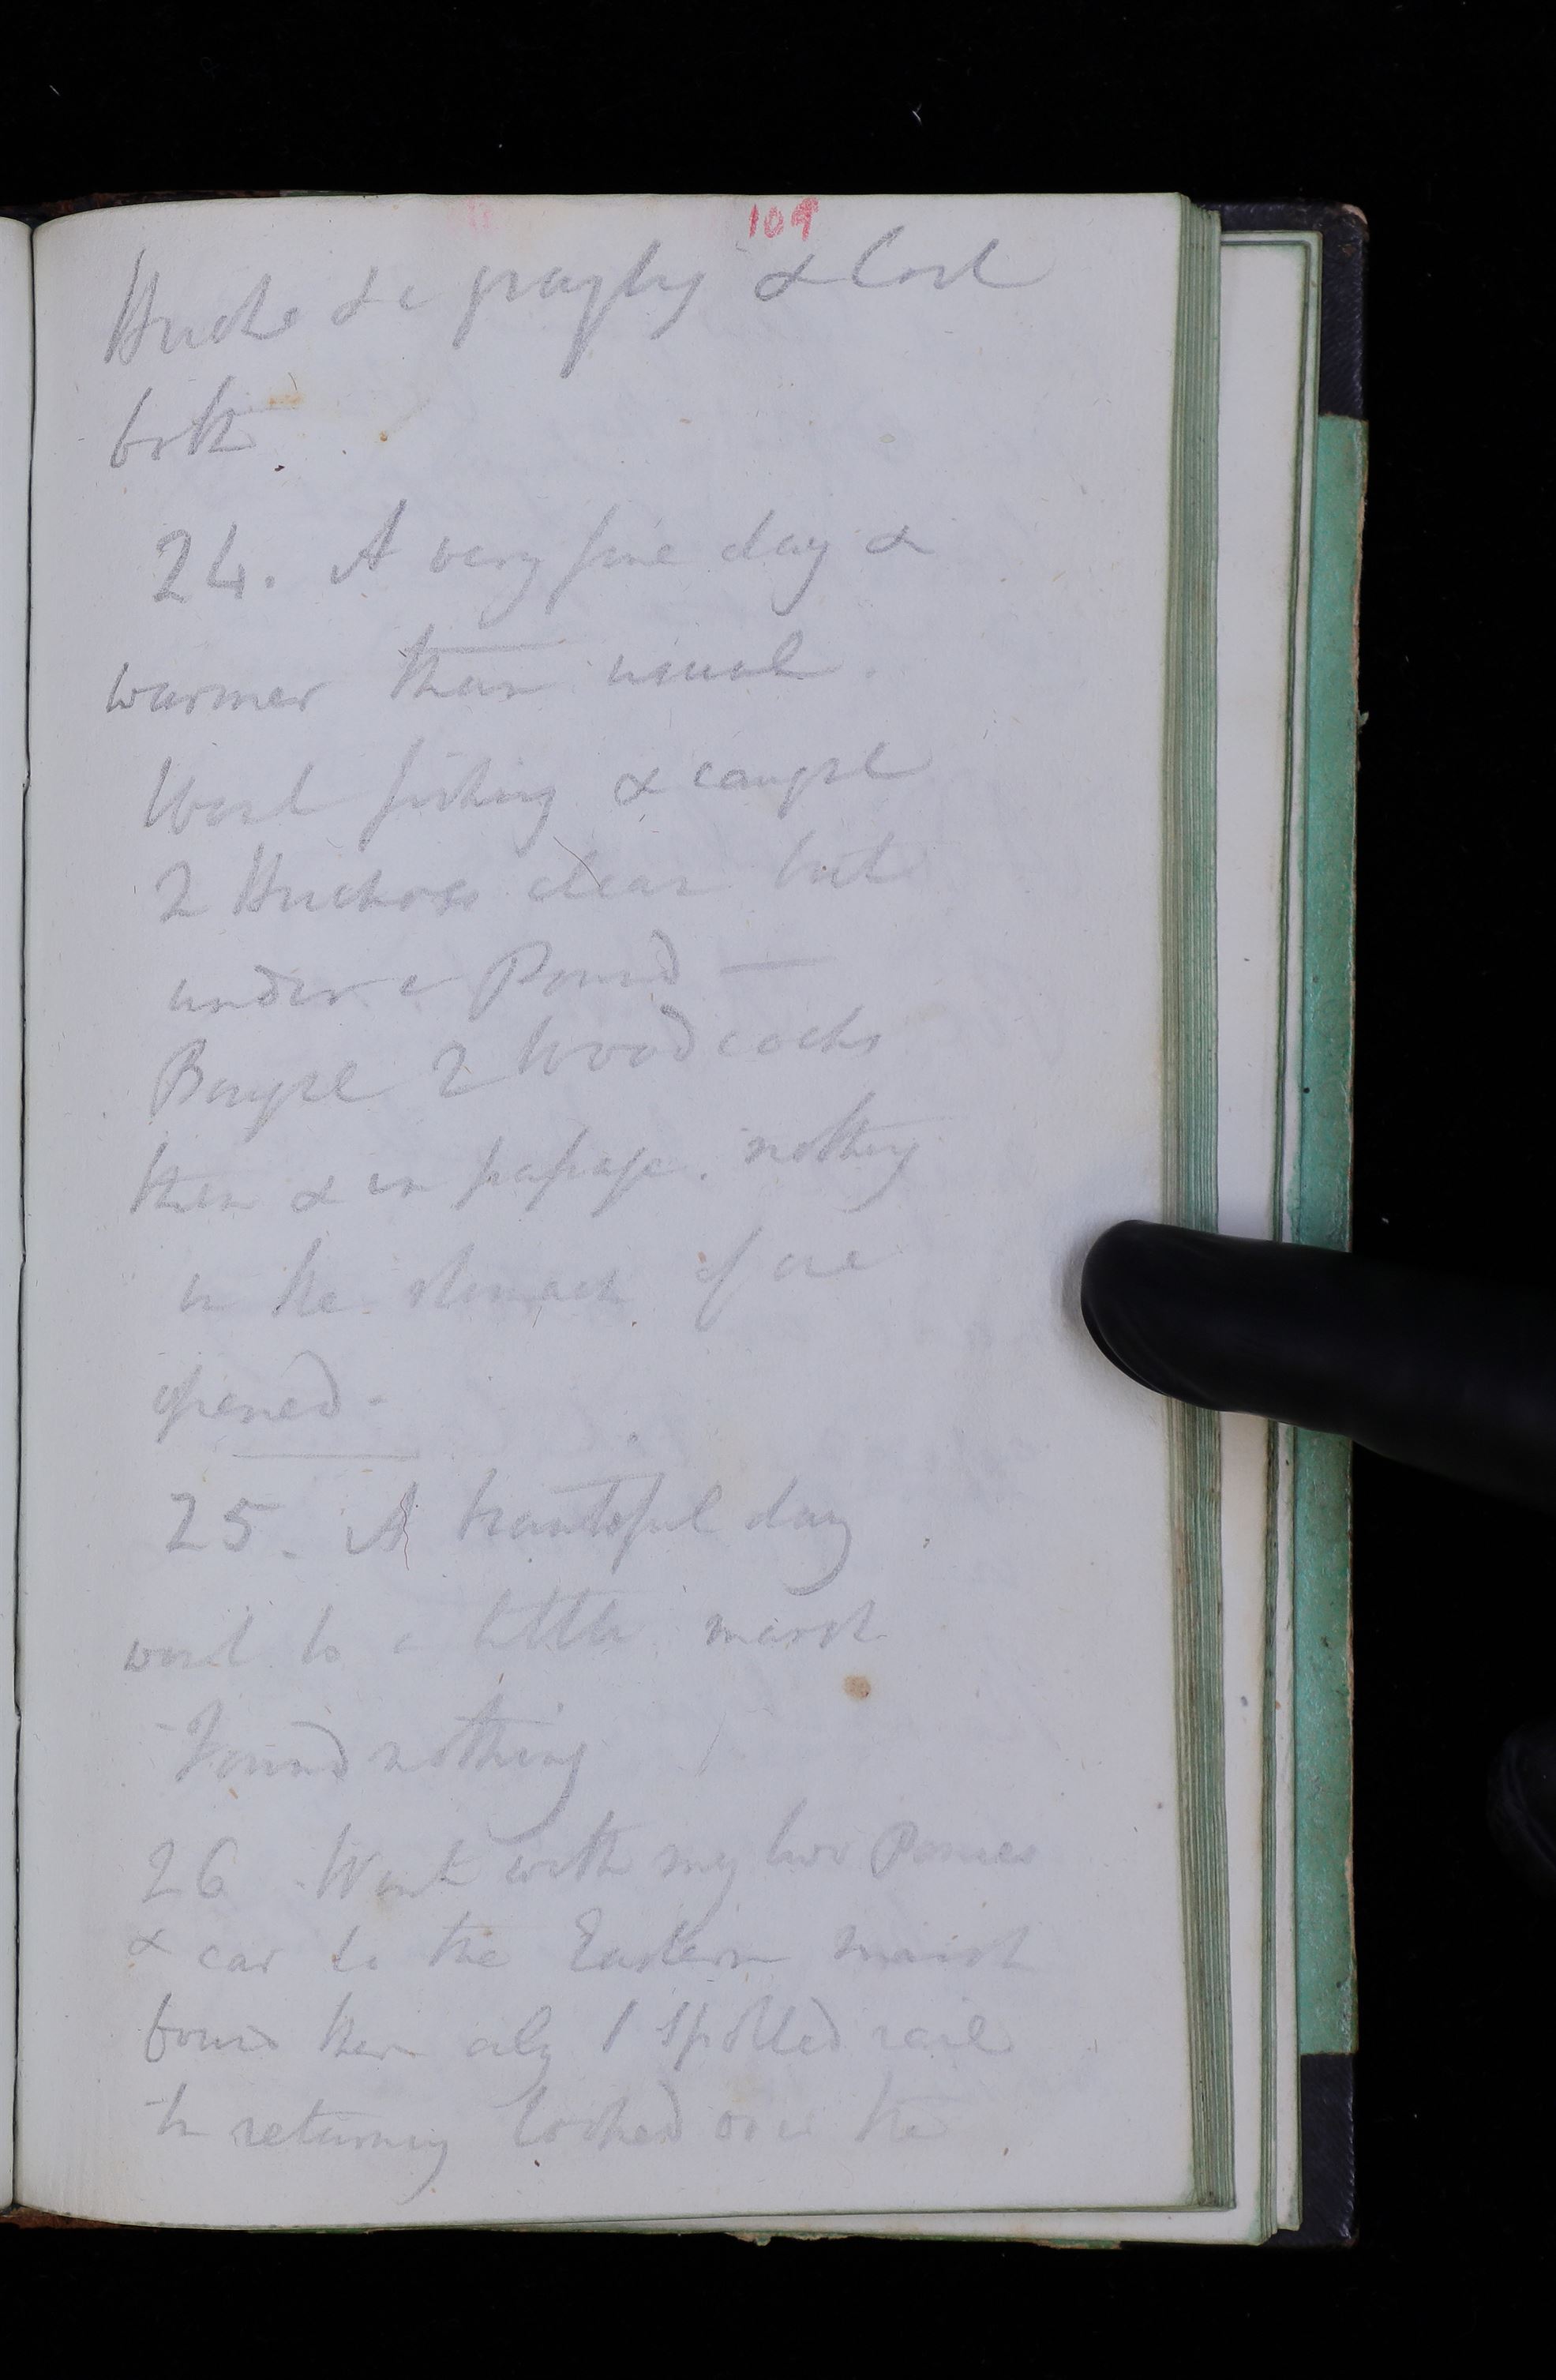 109
Hucho & a grayling & lost
both
24. A very fine day &
warmer than usual.
Went fishing & caught
2 Huchos clean but
under a Pound —
Bought 2 Woodcocks
then & in passage. nothing
in the stomach of one
opened -
25. A beautiful day
went to a little marsh
Found nothing
26 Went with my two Ponies
& car to the Eastern marsh
found there only 1 spotted rail
In returning looked over the